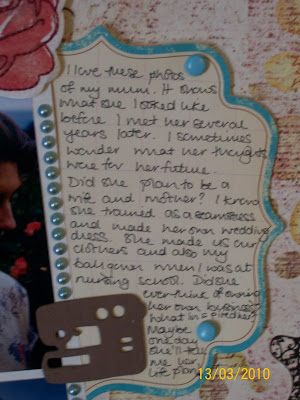 I love these photos
of my mum. It shows
what she looked like
before I met her several
years later. I sometimes
wonder what her thoughts
were for her future.
Did she plan to be a
wife and mother? I know
she trained as a seamstress
and made her own wedding
dress. She made us our
clothers and also my
ball gown when I was at
nursing school. Did she
ever think of owning
her own business?
What in
Maybe
one day
she'll tell
me her
life plan
13/03/2010